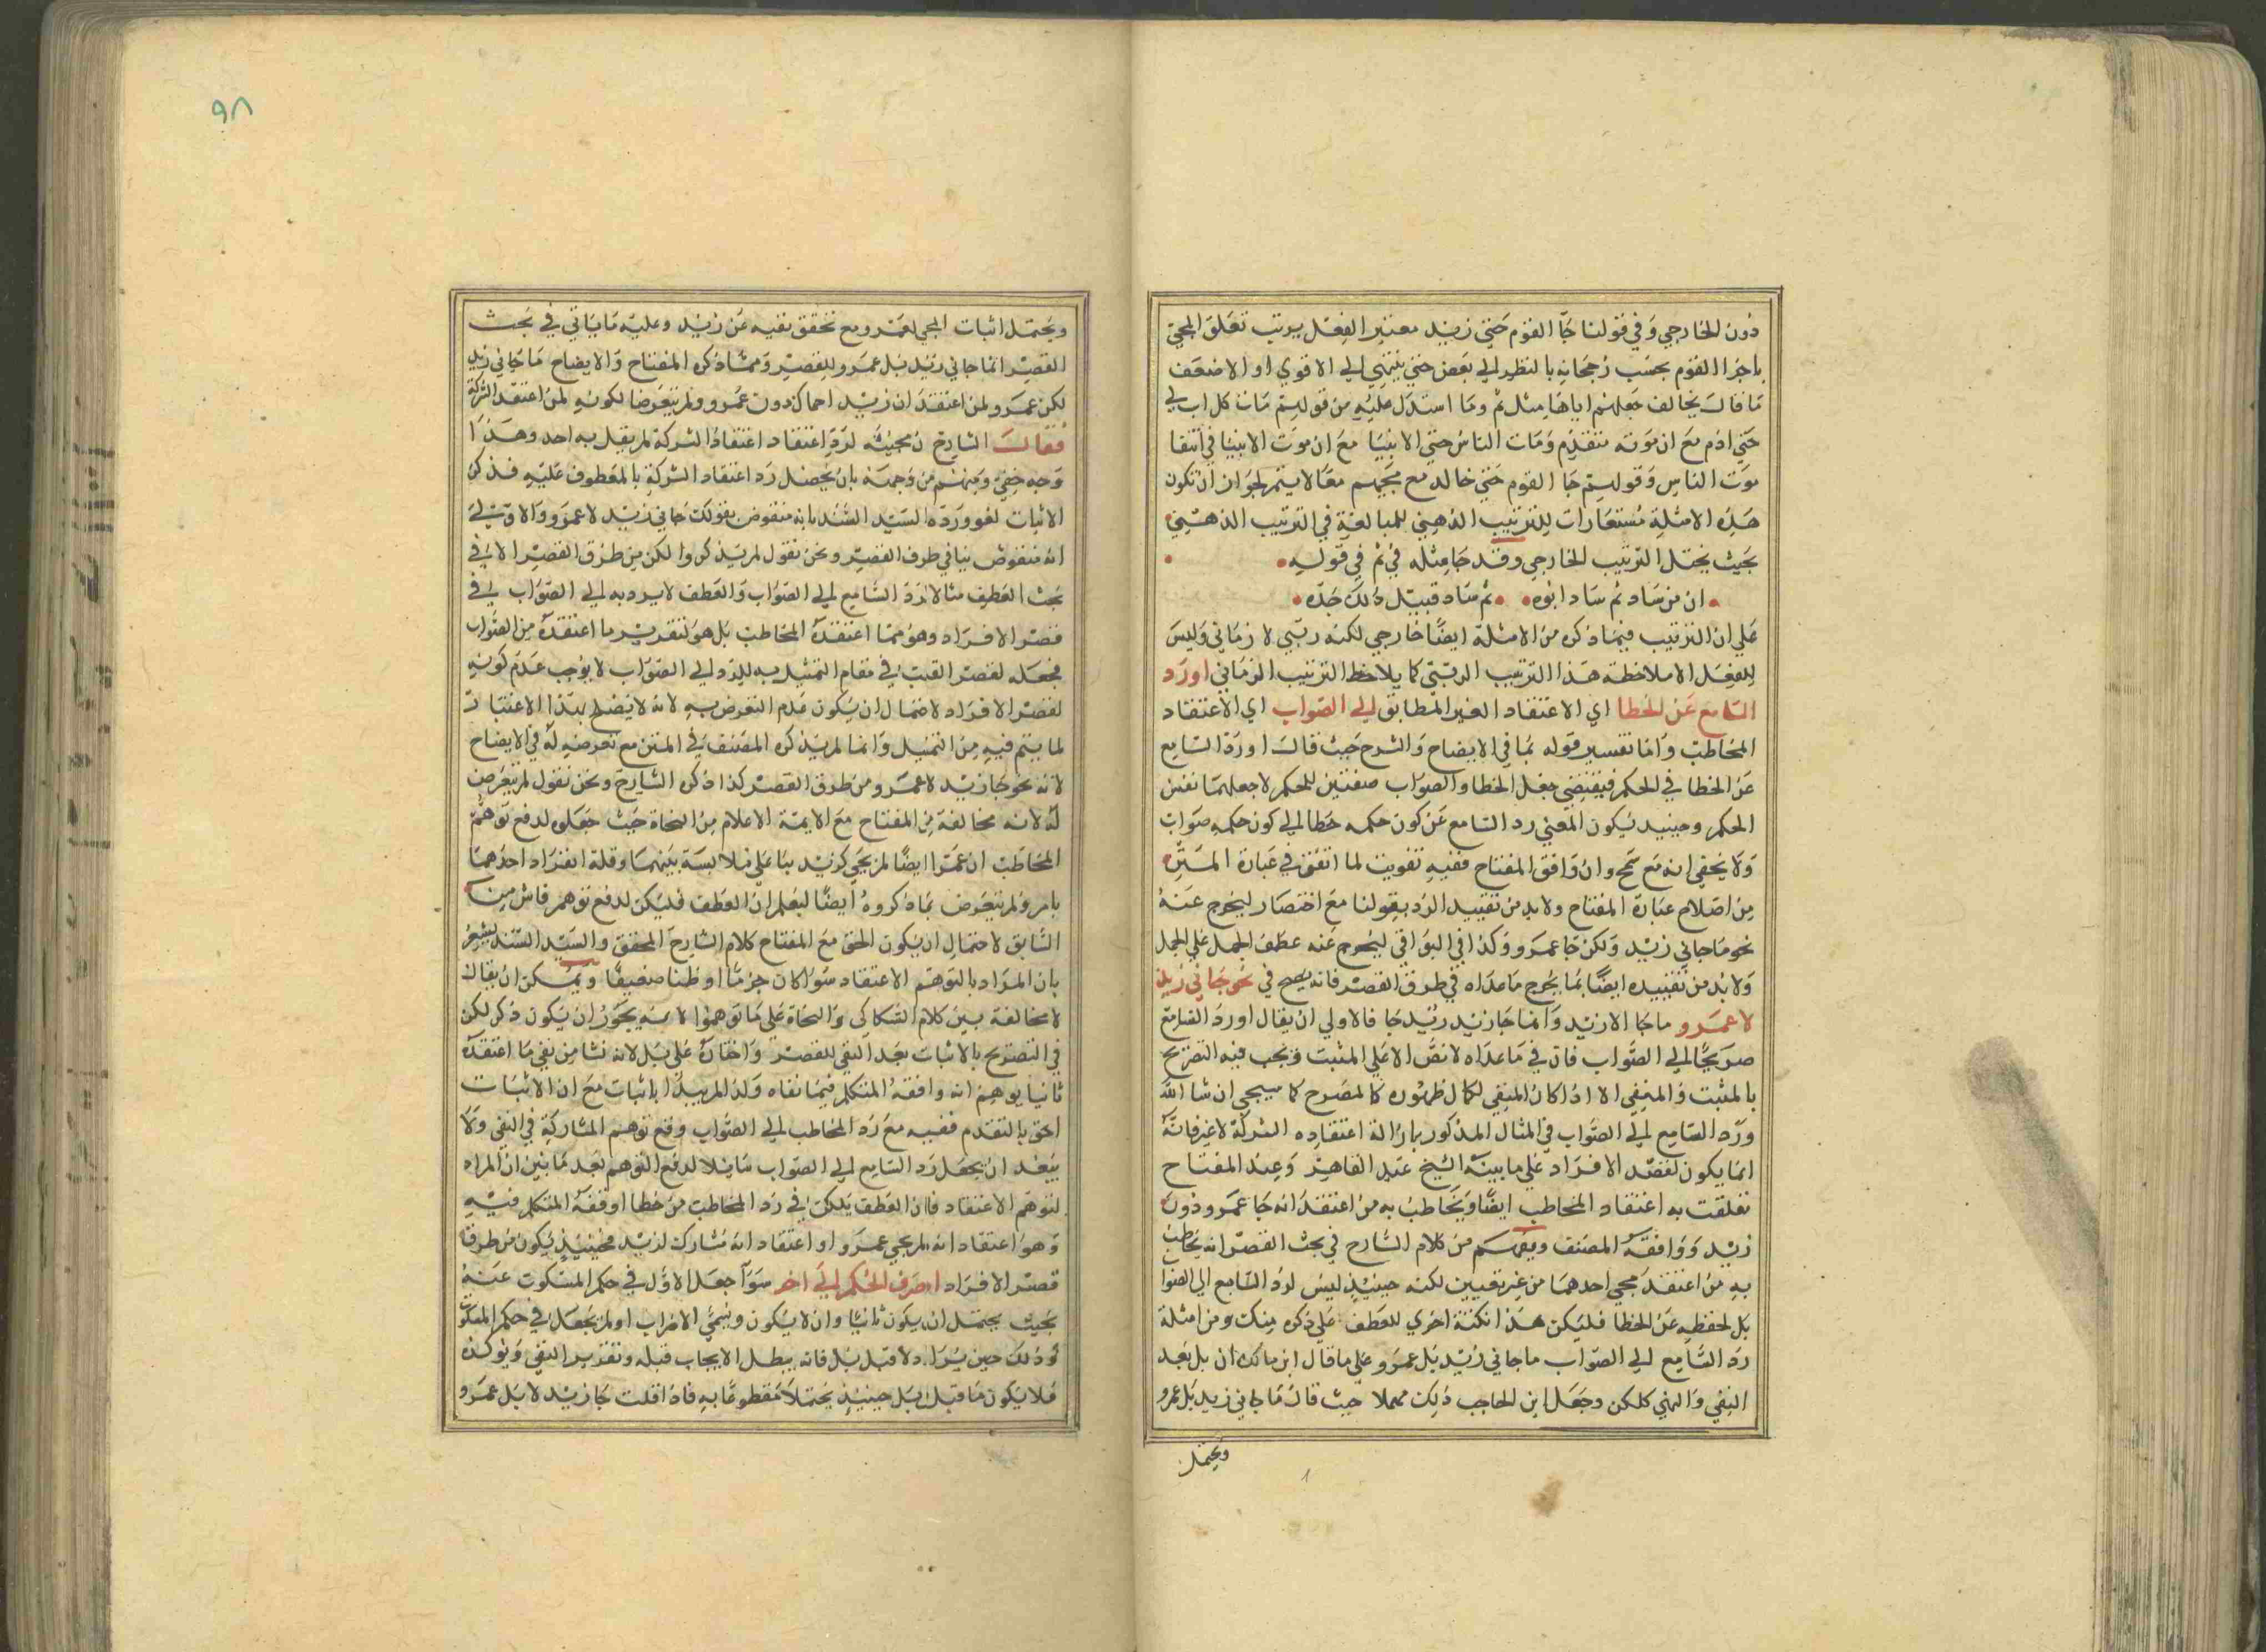 دون الخارجي وفي قولنا جا القوم حتي زيد معتبر الفعل يرتب تعلق المجئ
باجزا القوم بحسب رجحانه بالنظر الي بعض حتي ينتهي الي الاقوي او الاضعف
ما قال يخالف جعلهم اياها مثل ثم وما استدل عليه من قولهم مات كل اب لي
حتي ادم مع ان موته متقدم ومات الناس حتي الانبيا مع ان موت الانبيا في اثنا
موت الناس وقولهم جا القوم حتي خالد مع مجيهم معا لا يتم لجواز ان تكون
هذه الامثلة مستعارات للترتيب الذهني للمبالغة في الترتيب الذهني
بحيث يختل الترتيب الخارجي وقد جا مثله في ثم في قوله
ان من ساد ثم ساد ابوه ثم ساد قبيل ذلك جده
علي ان الترتيب فيما ذكره من الامثلة ايضا خارجي لكنه رتبي لا زماني وليس
للفعل الا ملاحظة هذا الترتيب الرتبي كما يلاحظ الترتيب الزماني او رد
السامع عن الخطا اي الاعتقاد الغير المطابق الي الصواب اي الاعتقاد
المخاطب وانما تفسير قوله بما في الايضاح والشرح حيث قال او رد السامع
عن الخطا في الحكم فيقتضي جعل الخطا والصواب صفتين للحكم لا جعلهما نفس
الحكم وحينيد يكون المعني رد السامع عن كون حكمه خطا الي كون حكمه صواب
ولا يخفي انه مع سمج وان وافق المفتاح ففيه تفويت لما اتفق في عبارة المتن
من اصلاح عبارة المفتاح ولا بد من تقييد الرد بقولنا مع اختصار ليخرج عنه
نحو ما جاني زيد ولكن جا عمرو وكذا في البواقي ليخرج عنه عطف الجمل علي الجمل
ولا بد من تقييده ايضا بما يخرج ما عداه في طرق القصر فانه يصح في نحو جاني زيد
لا عمرو ما جا الا زيد وانما جا زيد زيد جا فالاولي ان يقال او رد السامع
صريحا الي الصواب فان في ما عداه لا نص الا علي المثبت ويجب فيه التصريح
بالمثبت والمنفي الا اذا كان المنفي لكمال ظهوره كالمصرح كما سيجي ان شا الله
ورد السامع الي الصواب في المثال المذكور بازالة اعتقاده الشركة لا غير فانه
انما يكون لقصد الافراد علي ما بينه الشيخ عبد القاهر وعند المفتاح
تعلقت به اعتقاد المخاطب ايضا ويخاطب به من اعتقد انه جا عمرو دون
زيد ووافقه المصنف ويفهم من كلام الشارح في بحث القصر انه يخاطب
به من اعتقد مجي احدهما من غير تعيين لكنه حينيذ ليس لرد السامع الي الصوا
بل لحفظه عن الخطا فليكن هذا نكتة اخري للعطف علي ذكره منك ومن امثلة
رد السامع الي الصواب ما جاني زيد بل عمرو علي ما قال ابن مالك ان بل بعد
النفي والنهي كلكن وجعل ابن الحاجب ذلك محملا حيث قال ما جاني زيد بل عمرو
ويحتمل
٩٨
ويحتمل اثبات المجي لعمرو مع تحقق نفيه عن زيد وعليه ما ياتي في بحث
القصر انما جاني زيد بل عمرو للقصر ومما ذكره المفتاح والايضاح ما جاني زيد
لكن عمرو لمن اعتقد ان زيد ا جاك دون عمرو ولم يتعرضا لكونه لمن اعتقد الشركة
فقال الشارح ان مجيئه لرد اعتقاد اعتقاد الشركة لم يقل به احد وهذا
وجه خفي ومنهم من وجهه بان يحصل رد اعتقاد الشركة بالمعطوف عليه فذكر
الاثبات لغو ورده السيد السند بانه منقوض بقولك جاني زيد لا عمرو والاولي
انه منقوض بباقي طرق القصر ونحن نقول لم يذكروا لكن من طرق القصر الا في
بحث العطف مثالا لرد السامع الي الصواب والعطف لا يرد به الي الصواب في
قصر الافراد وهو مما اعتقده المخاطب بل هو لتقرير ما اعتقده من الصواب
فجعله لقصر القلب في مقام التمثيل به للرد الي الصواب لا يوجب عدم كونه
لقصر الافراد لاحتمال ان يكون عدم التعرض به لانه لا يصلح بهذا الاعتبار
لما يتم فيه من التمثيل وانما لم يذكره المصنف في المتن مع تعرضه له في الايضاح
لانه نحو جا زيد لا عمرو من طرق القصر كذا ذكره الشارح ونحن نقول لم يتعرض
له لانه مخالفة من المفتاح مع الايمة الاعلام من النحاة حيث جعلوه لدفع توهم
المخاطب ان عمرا ايضا لم يجي كزيد بنا علي ملابسة بينهما وقلة انفراد احدهما
بامر ولم يتعرض بما ذكروه ايضا ليعلم ان العطف فليكن لدفع توهم ناش من
السابق لاحتمال ان يكون الحق مع المفتاح كلام الشارح المحقق والسيد السند يشعر
بان المراد بالتوهم الاعتقاد سوا كان جزما او ظنا ضعيفا ويمكن ان يقال
لا مخالفة بين كلام السكاكي والنحاة علي ما توهموا لانه يجوز ان يكون ذكر لكن
في التصريح بالاثبات بعد النفي للقصر واختاره علي بل لانه نشا من نفي ما اعتقده
ثانيا يوهم انه وافقه المتكلم فيما نفاه ولذا لم يبدا باثبات مع ان الاثبات
احق بالتقدم ففيه مع رد المخاطب الي الصواب دفع توهم المشاركة في النفي ولا
يبعد ان يجعل رد السامع الي الصواب شاملا لدفع التوهم بعد ما بين ان المراد
لتوهم الاعتقاد فان العطف بلكن في رد المخاطب من خطا وافقه المتكلم فيه
وهو اعتقاد انه لم يجي عمرو او اعتقاد انه مشارك لزيد فحينيذ يكون من طرق
قصر الافراد او صرف الحكم الي اخر سوا جعل الاول في حكم المسكوت عنه
بحيث يحتمل ان يكون ثابتا وان لا يكون ويسمي الاضراب او لم يجعل في حكم المسكوت
وذلك حين يزاد لا قبل بل فانه يبطل الايجاب قبله وتقرير النفي ويوكده
فلا يكون ما قبل بل حينيذ يحتملا مقطوعا به فاذا قلت جا زيد لا بل عمرو